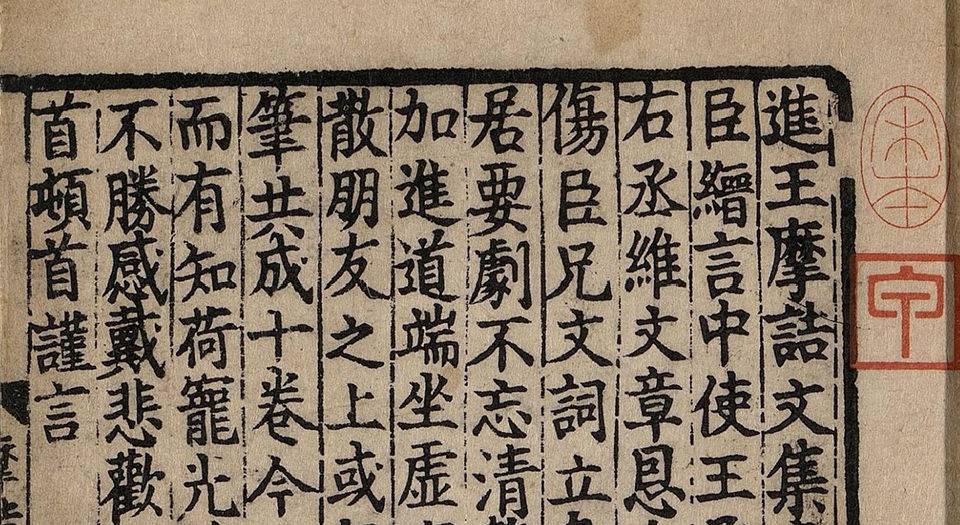 進王摩詰文集
臣縉言中使王
右丞維文章恩
傷臣兄文詞立
居要劇不忘清
加進道端坐虛
散朋友之上或
筆共成十卷今
而有知荷寵光
不勝感戴悲歡
首頓首謹言